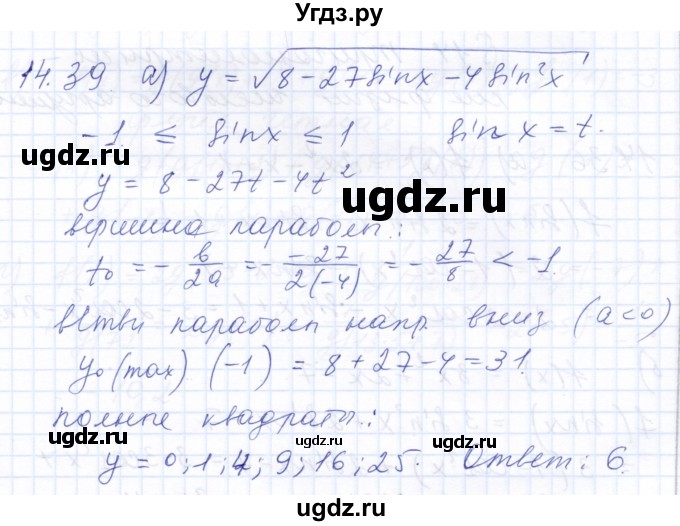 Угдз.ру
14.39 а) y = √(8 − 27 sin x − 4 sin² x)
−1 ≤ sin x ≤ 1 sin x = t.
ugdz.ru ugdz.ru
y = 8 − 27t − 4t²
вершина параболы:
t₀ = − b/2a = − −27/2(−4) = − 27/8 < −1.
ugdz.ru ugdz.ru
ветви параболы напр. вниз (a<0)
y₀ (max) (−1) = 8 + 27 − 4 = 31.
ugdz.ru ugdz.ru
полные квадраты:
y = 0; 1; 4; 9; 16; 25. Ответ: 6.
ugdz.ru ugdz.ru